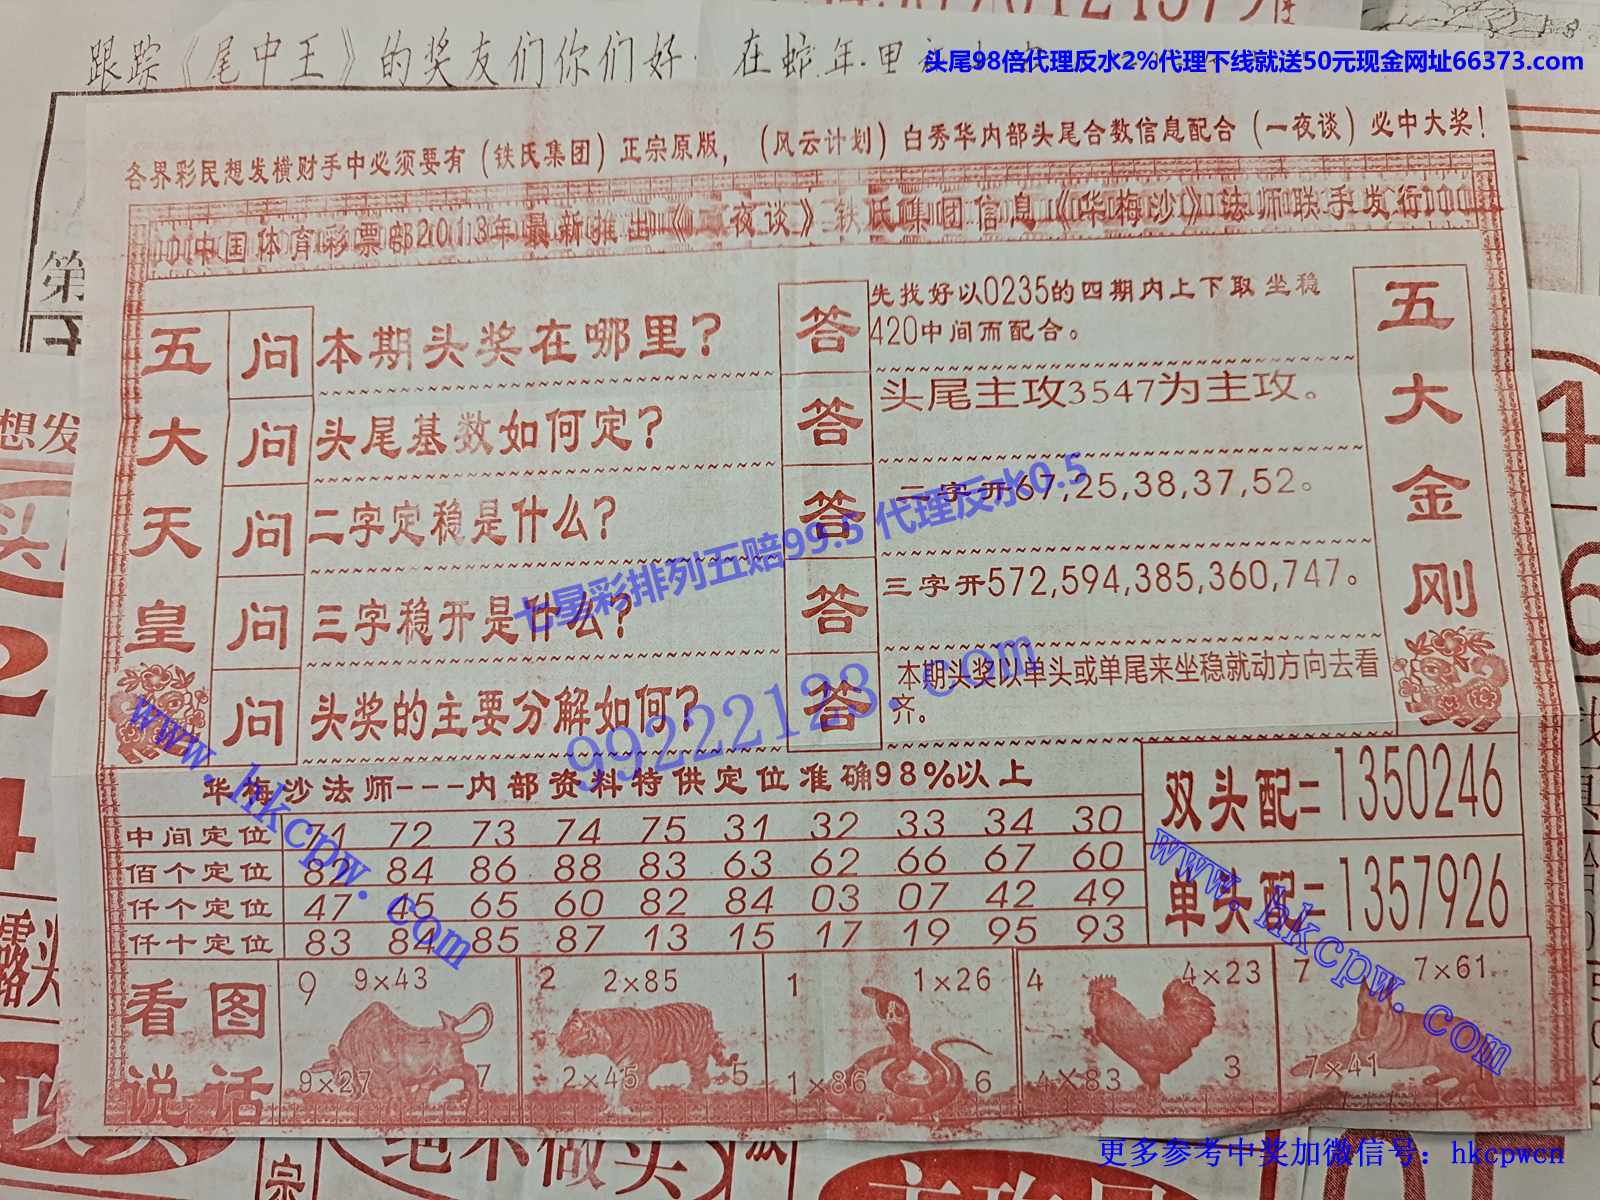 跟踪《尾中王》的奖友们你们好.在蛇年.里
头尾98倍代理反水2%代理下线就送50元现金网址66373.com
各界彩民想发横财手中必须要有(铁氏集团)正宗原版,(风云计划)白秀华内部头尾合数信息配合(一夜谈)必中大奖!
中国体育彩票部2013年最新推出《一夜谈》铁氏集团信息《华梅沙》法师联手发行
第
想发
五大天皇
问 本期头奖在哪里?
答 先找好以0235的四期内上下取坐稳
420中间而配合。
问 头尾基数如何定?
答 头尾主攻3547为主攻。
问 二字定稳是什么?
答 二字开67,25,38,37,52。
问 三字稳开是什么?
答 三字开572,594,385,360,747。
问 头奖的主要分解如何?
答 本期头奖以单头或单尾来坐稳就动方向去看
齐。
五大金刚
七星彩排列五赔99.5 代理反水0.5
99222123.com
www.hkcpw.com
华梅沙法师---内部资料特供定位准确98%以上
中间定位 71 72 73 74 75 31 32 33 34 30
佰个定位 82 84 86 88 83 63 62 66 67 60
仟个定位 47 45 65 60 82 84 03 07 42 49
仟十定位 83 84 85 87 13 15 17 19 95 93
双头配=1350246
单头配=1357926
www.hkcpw.com
看图说话
9 9×43
9×27 7
2 2×85
2×45 5
1 1×26
1×86 6
4 4×23
4×83 3
7 7×61
7×41
绝不做头
更多参考中奖加微信号：hkcpwcn